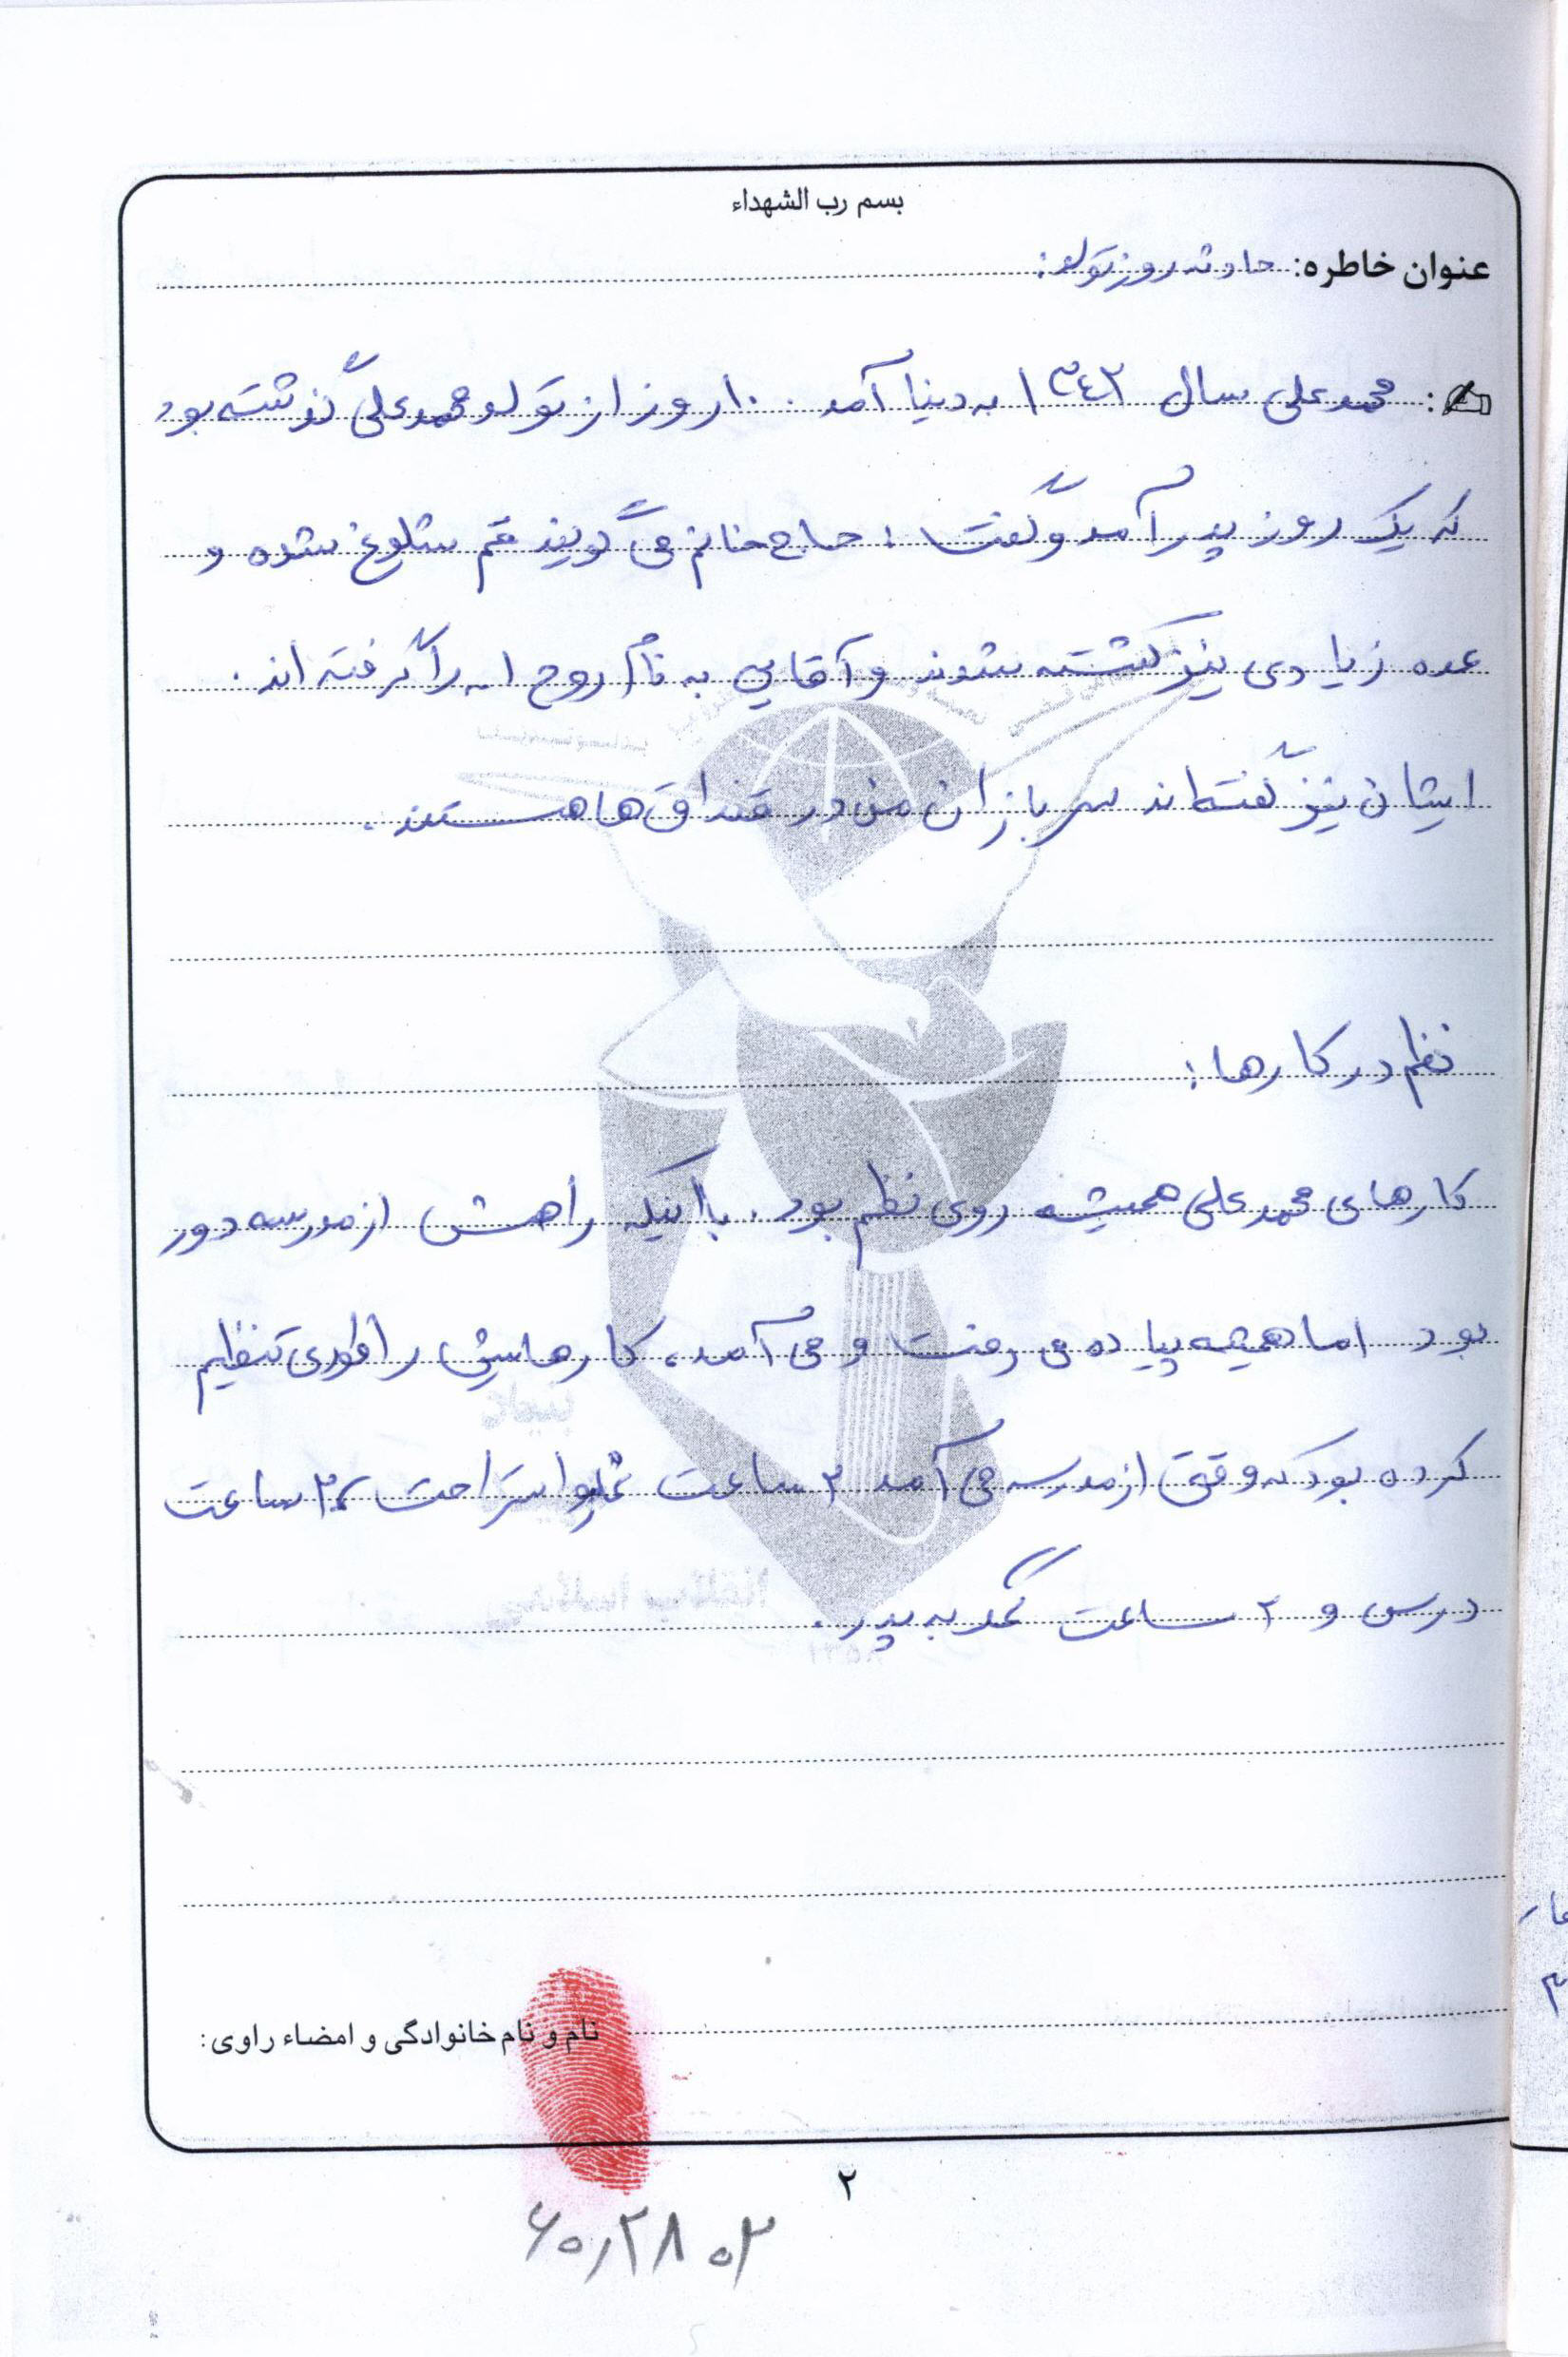 بسم رب الشهداء
عنوان خاطره: حادثه روز تولد:
محمد علی سال ۱۳۴۲ به دنیا آمد. ۱۰ روز از تولد محمد علی گذشته بود
که یک روز پدر آمد و گفت: حاج خانم می گویند قم شلوغ شده و
عده زیادی نیز کشته شدند و آقایی به نام روح ا... را گرفته اند.
ایشان نیز گفته‌اند سربازان من در قنداق ها هستند.
نظم در کارها:
کارهای محمد علی همیشه روی نظم بود. با اینکه راهش از مدرسه دور
بود اما همیشه پیاده می رفت و می آمد، کارهایش را طوری تنظیم
کرده بود که وقتی از مدرسه می آمد ۲ ساعت استراحت، ۲ ساعت
درس و ۲ ساعت کمک به پدر.
نام و نام خانوادگی و امضاء راوی:
۲